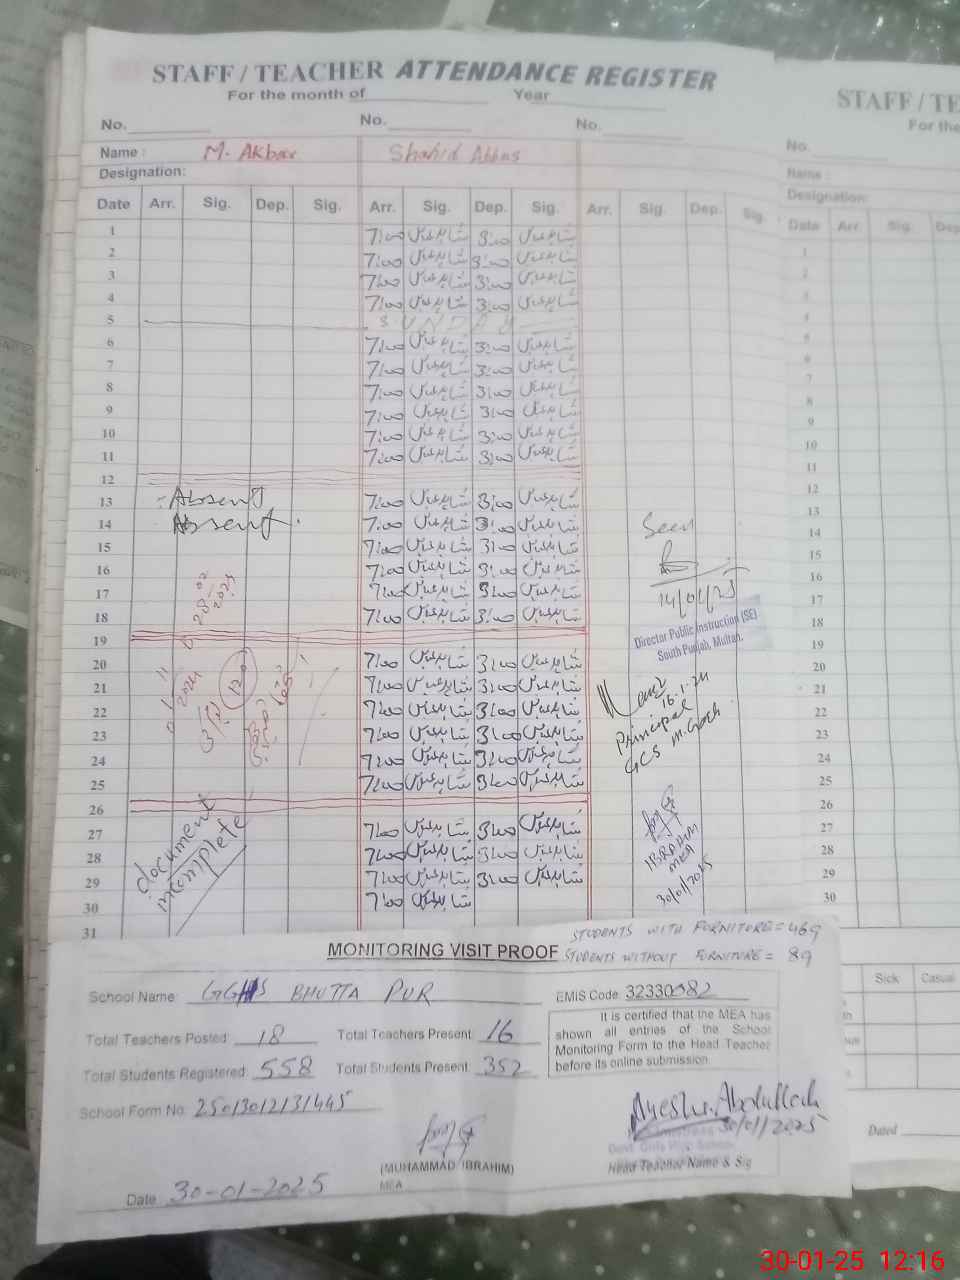 STAFF / TEACHER ATTENDANCE REGISTER
For the month of Year
No. No. No.
Name : M. Akbar Shahid Abbas
Designation:
Date Arr. Sig. Dep. Sig. Arr. Sig. Dep. Sig. Arr. Sig. Dep. Sig.
1 7:00 شاہد عباس 3:00 شاہد عباس
2 7:00 شاہد عباس 3:00 شاہد عباس
3 7:00 شاہد عباس 3:00 شاہد عباس
4 7:00 شاہد عباس 3:00 شاہد عباس
5 SUNDAY
6 7:00 شاہد عباس 3:00 شاہد عباس
7 7:00 شاہد عباس 3:00 شاہد عباس
8 7:00 شاہد عباس 3:00 شاہد عباس
9 7:00 شاہد عباس 3:00 شاہد عباس
10 7:00 شاہد عباس 3:00 شاہد عباس
11 7:00 شاہد عباس 3:00 شاہد عباس
12
13 Absent 7:00 شاہد عباس 3:00 شاہد عباس
14 Absent 7:00 شاہد عباس 3:00 شاہد عباس
15 7:00 شاہد عباس 3:00 شاہد عباس
16 7:00 شاہد عباس 3:00 شاہد عباس
17 7:00 شاہد عباس 3:00 شاہد عباس
18 7:00 شاہد عباس 3:00 شاہد عباس
19
20 7:00 شاہد عباس 3:00 شاہد عباس
21 7:00 شاہد عباس 3:00 شاہد عباس
22 7:00 شاہد عباس 3:00 شاہد عباس
23 7:00 شاہد عباس 3:00 شاہد عباس
24 7:00 شاہد عباس 3:00 شاہد عباس
25 7:00 شاہد عباس 3:00 شاہد عباس
26
27 7:00 شاہد عباس 3:00 شاہد عباس
28 7:00 شاہد عباس 3:00 شاہد عباس
29 7:00 شاہد عباس 3:00 شاہد عباس
30 7:00 شاہد عباس
31
document
incomplete
Seen
14/01/25
Director Public Instruction (SE)
South Punjab, Multan.
16.1.24
Principal
GCS M.Garh
IBRAHIM
MEA
30/01/2025
STAFF / TE
For the
No.
Name :
Designation:
Date Arr. Sig. Dep
1
2
3
4
5
6
7
8
9
10
11
12
13
14
15
16
17
18
19
20
21
22
23
24
25
26
27
28
29
30
Sick Casual
Dated
STUDENTS WITH FORNITURE = 469
MONITORING VISIT PROOF STUDENTS WITHOUT FORNITURE = 89
School Name: GGHS BHUTTA PUR EMIS Code: 32330082
Total Teachers Posted: 18 Total Teachers Present: 16
Total Students Registered: 558 Total Students Present: 352
It is certified that the MEA has
shown all entries of the School
Monitoring Form to the Head Teacher
before its online submission.
School Form No: 25013012131445
Ayesha Abdullah
30/01/2025
Head Teacher Name & Sig
(MUHAMMAD IBRAHIM)
MEA
Date 30-01-2025
30-01-25 12:16